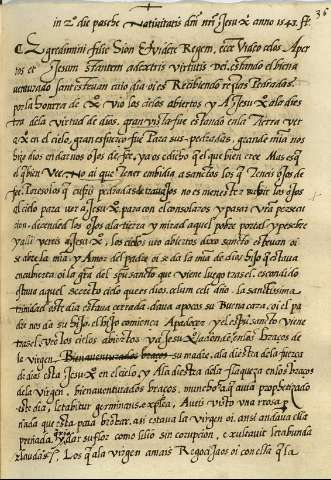 36
in 2ª. die pasche Nativitatis dni nri Jesu X anno 1543. ff.
Egredimini filie Sion & videte Regem, ecce video celos Aper
tos et Jesum stantem a dextris virtutis dei. estando el biena
venturado sant estevan cabo dia oi es Recibiendo pedradas
por la honrra de X vio los cielos abiertos y A Jesu X a la dies
tra de la virtud de dios. gran vista fue estando en la tierra ver
a X en el cielo, gran esfuerço fue Para sus pedradas, grande mia nos
hizo dios en darnos ojos de fe, ya os e dicho q el que bien cree Mas es q
el q bien vee. No ai que tener embidia a sanctos los q teneis ojos de
fe. Parasolos q sufris pedradas de trabajos no es menester subir los ojos
al cielo para ver a Jesu X, para con el consolaros y pasar vra persecu
cion, decendid los ojos a la tierra y mirad aquel pobre portal y pesebre
y alli vereis a Jesu X, los cielos vio abiertos dixo sancto estevan oi
se abre la mia y Amor del padre oi se da la mia de dios, hijo q estava
encubierta oi la gra del spu sancto que viene luego tras el, escondido
estava aquel secreto cielo que es dios, celum celi dno. la sanctissima
trinidad este dia estava cerrada, dava a pocos su Buena cara, oi el pa
dre nos da su hijo el hijo comiença A padecer y el spu sancto viene
tras el. ve los cielos abiertos y a Jesu X a donde, en los braços de
la virgen. Bienaventurados braços su madre, a la diestra de la fuerça
de dios esta Jesu X en el cielo, y A la diestra de la flaqueza en los braços
de la virgen, bienaventurados braços, mucho ha q avia prophetizado
este dia, letabitur germinans. explica, Aveis visto una rrosa p
ñada que esta para brotar. asi estava la virgen oi. ansi andava ella
preñada para dar su flor como lilio sin corrupcion, exultavit letabunda
& laudans. ps. Los q a la virgen amais Regocijaos oi con ella q la